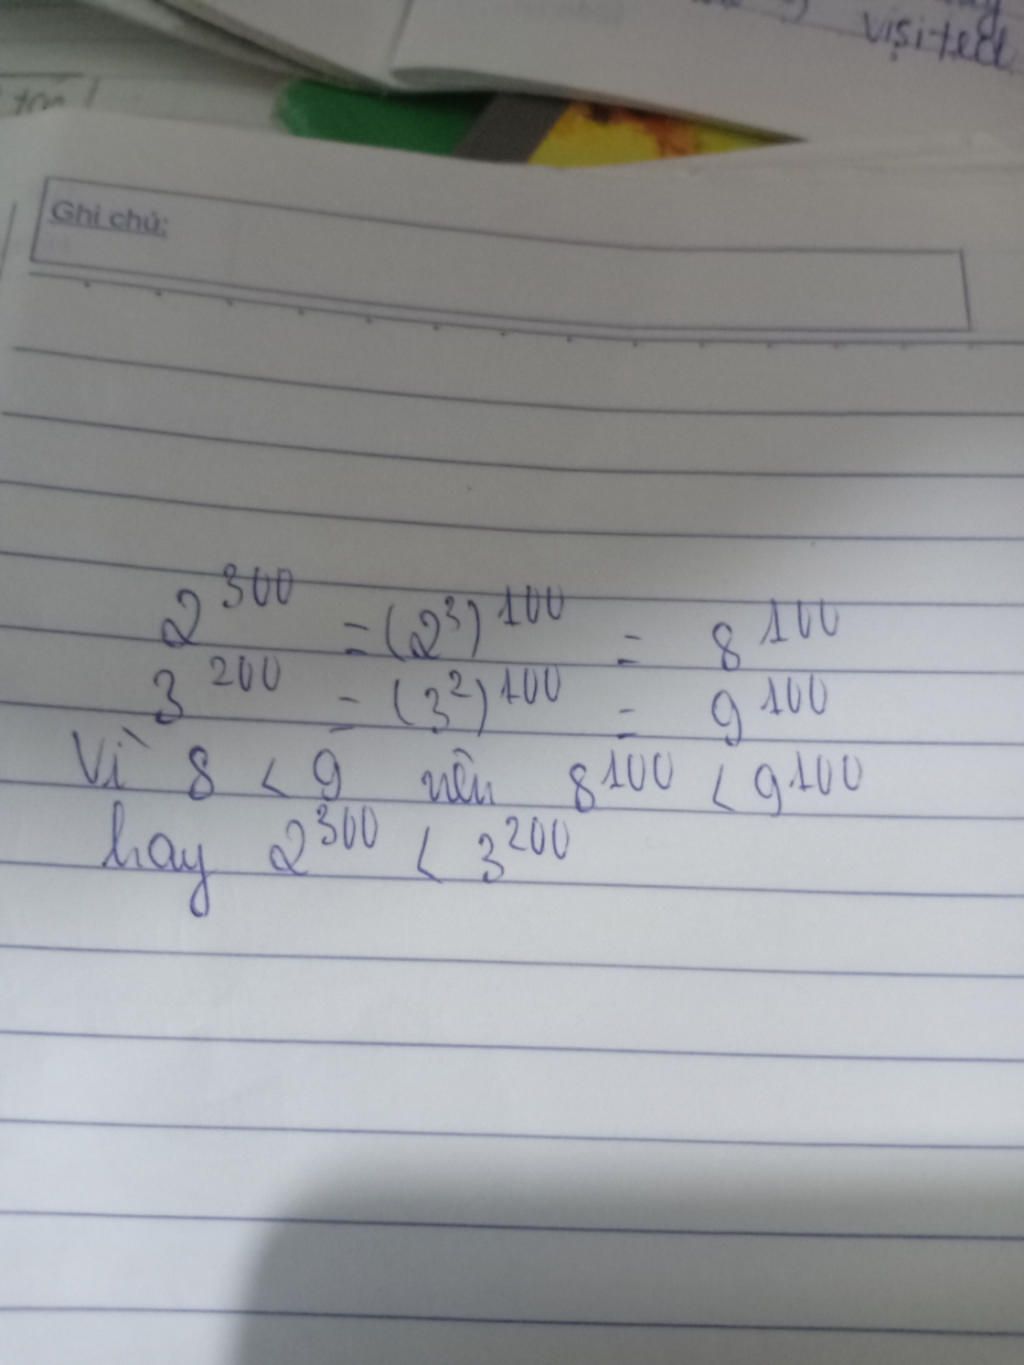 visited
Ghi chú:
2^300 = (2^3)^100 = 8^100
3^200 = (3^2)^100 = 9^100
Vì 8 < 9 nên 8^100 < 9^100
hay 2^300 < 3^200